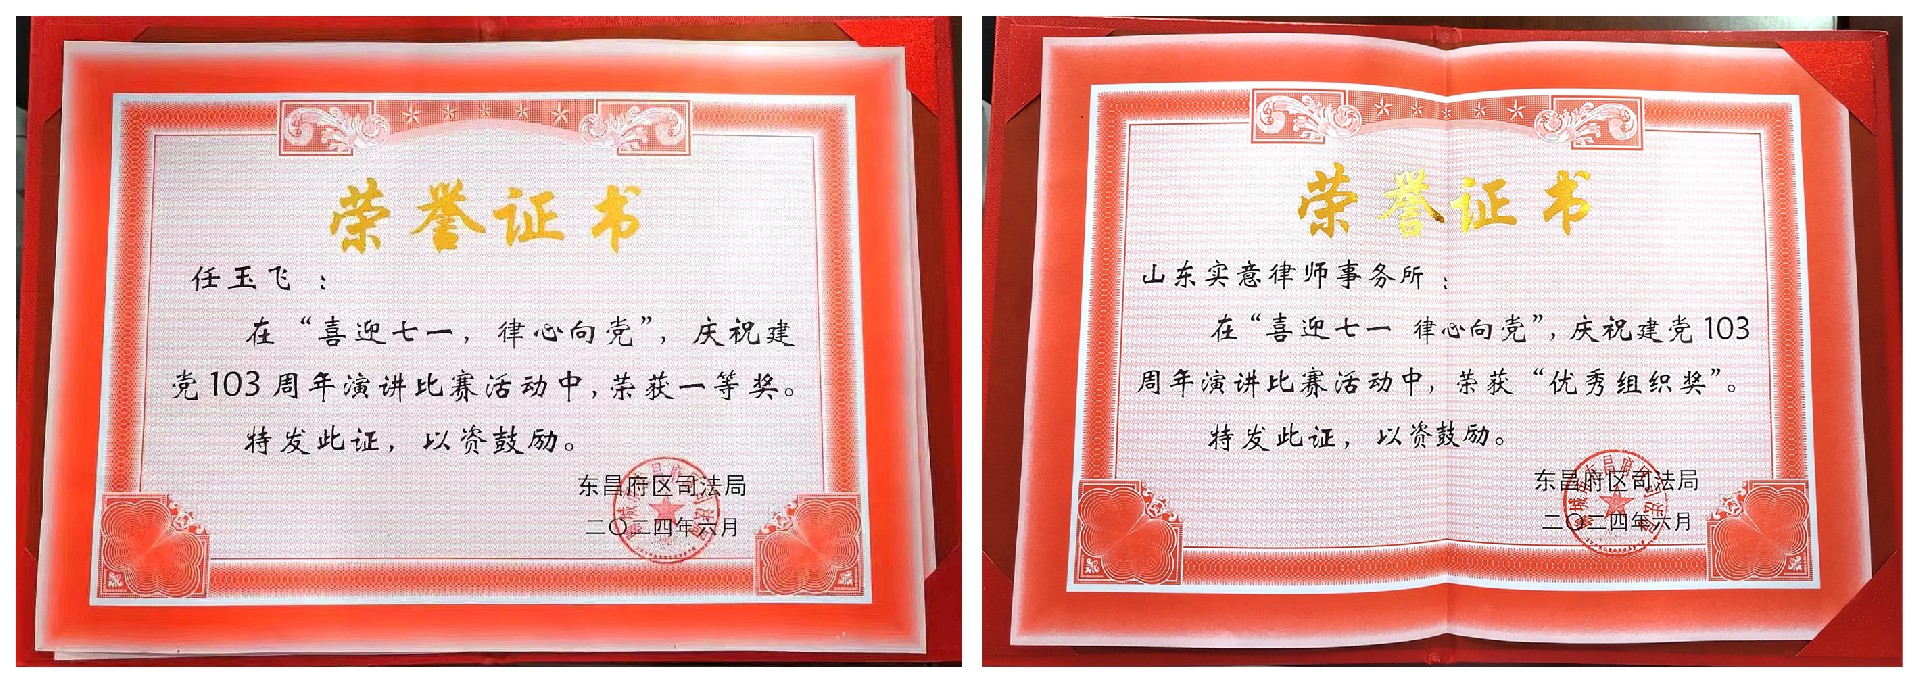 荣誉证书
任玉飞：
在“喜迎七一，律心向党”，庆祝建
党103周年演讲比赛活动中，荣获一等奖。
特发此证，以资鼓励。
东昌府区司法局
二〇二四年六月
荣誉证书
山东实意律师事务所：
在“喜迎七一 律心向党”，庆祝建党103
周年演讲比赛活动中，荣获“优秀组织奖”。
特发此证，以资鼓励。
东昌府区司法局
二〇二四年六月